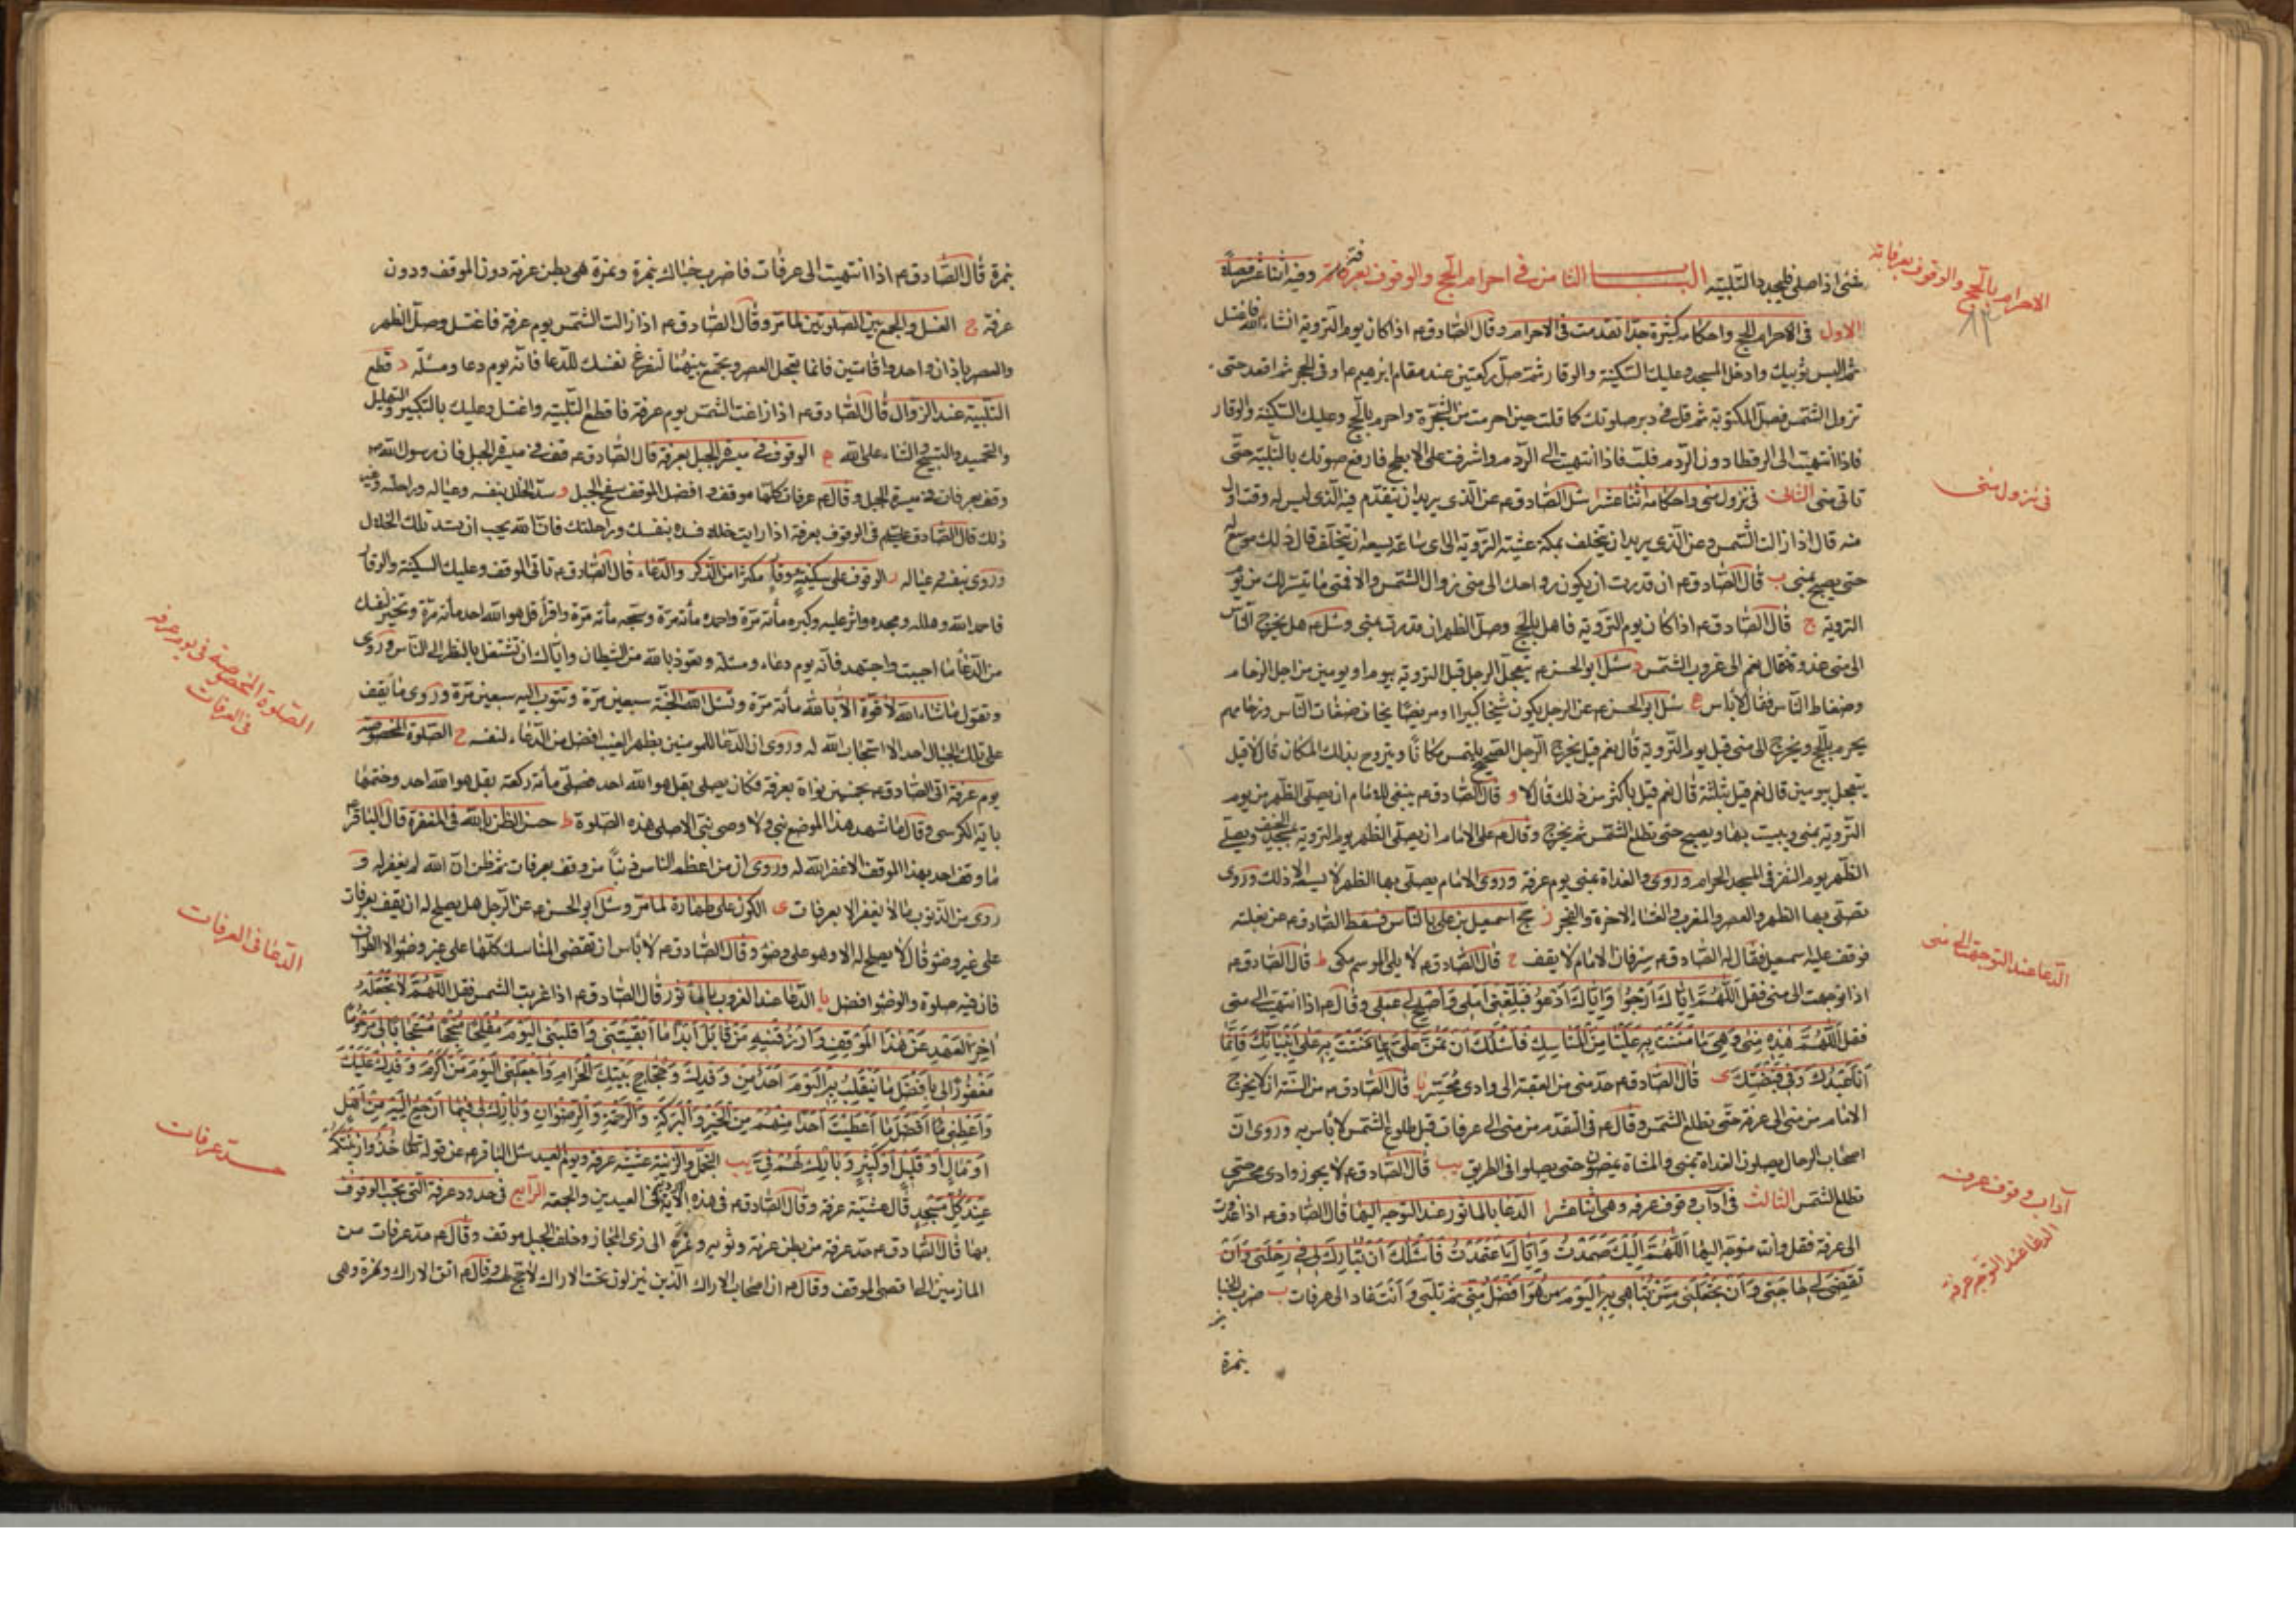 شئ اذا صلى فليجدد التلبية الباب الثامن في احرام الحج والوقوف بعرفة وفيه اثنا عشر فصلا
الاحرام بالحج والوقوف بعرفات
الاول في الاحرام بالحج واحكامه كثيرة جدا تقدمت في الاحرام وقال الصادق ع اذا كان يوم التروية انشاء الله فاغتسل
ثم البس ثوبيك وادخل المسجد وعليك السكينة والوقار ثم صل ركعتين عند مقام ابرهيم ع او في الحجر ثم اقعد حتى
تزول الشمس فصل المكتوبة ثم قل في دبر صلوتك كما قلت حين احرمت من الشجرة واحرم بالحج وعليك السكينة والوقار
فاذا انتهيت الى الرقطا دون الردم فلب فاذا انتهيت الى الردم واشرفت على الابطح فارفع صوتك بالتلبية حتى
تاتى منى الثانى في نزول منى واحكامه اثنا عشر ا سئل الصادق ع عن الذى يريد ان يتقدم فيه الذى ليس له وقت اول
في نزول منى
منه قال اذا زالت الشمس وعن الذى يريد ان يتخلف بمكة عشية التروية الى اى ساعة يسعه ان يتخلف قال ذلك موسع له
حتى يصبح بمنى ب قال الصادق ع ان قدرت ان يكون رواحك الى منى زوال الشمس والا فمتى ما تيسر لك من يوم
التروية ج قال الصادق ع اذا كان يوم التروية فاهل بالحج وصل الظهر ان قدرت بمنى وسئل ع هل يخرج الناس
الى منى غدوة فقال نعم الى غروب الشمس د سئل ابو الحسن ع يتعجل الرجل قبل التروية بيوم او يومين من اجل الزحام
وضغاط الناس فقال لا باس ه سئل ابو الحسن ع عن الرجل يكون شيخا كبيرا او مريضا يخاف ضغاط الناس وزحامهم
يحرم بالحج ويخرج الى منى قبل يوم التروية قال نعم قيل يخرج الرجل الصحيح يلتمس مكانا ويتروح بذلك المكان قال لا قيل
يتعجل بيومين قال نعم قيل بثلثة قال نعم قيل باكثر من ذلك قال لا و قال الصادق ع ينبغى للامام ان يصلى الظهر من يوم
التروية بمنى ويبيت بها ويصبح حتى تطلع الشمس ثم يخرج وقال ع على الامام ان يصلى الظهر يوم التروية بمسجد الخيف ويصلى
الظهر يوم النفر في المسجد الحرام وروى والغداة بمنى يوم عرفة وروى الامام يصلى بها الظهر لا يسعه الا ذلك وروى
تصلى بها الظهر والعصر والمغرب والعشاء الاخرة والفجر ز حج اسمعيل بن على بالناس فسقط الصادق ع عن بغلته
فوقف عليه اسمعيل فقال له الصادق ع سر فان الامام لا يقف ح قال الصادق ع لا يلى الموسم مكى ط قال الصادق ع
الدعا عند التوجه الى منى
اذا توجهت الى منى فقل اللهم اياك ارجوا واياك ادعو فبلغنى املى واصلح لى عملى وقال ع اذا انتهيت الى منى
فقل اللهم هذه منى وهى مما مننت به علينا من المناسك فاسئلك ان تمن على بما مننت به على انبيائك فانما
انا عبدك وفى قبضتك ى قال الصادق ع حد منى من العقبة الى وادى محسر يا قال الصادق ع من السنة ان لا يخرج
الامام من منى الى عرفة حتى تطلع الشمس وقال ع في التقدم من منى الى عرفات قبل طلوع الشمس لا باس به وروى ان
اصحاب الرحال يصلون الغداة بمنى والمشاة يمضون حتى يصلوا في الطريق يب قال الصادق ع لا يجوز وادى محسر حتى
آداب وقوف عرفه
تطلع الشمس الثالث في آداب وقوف عرفه وهى اثنا عشر ا الدعا بالماثور عند التوجه اليها قال الصادق ع اذا غدوت
الدعا عند التوجه عرفة
الى عرفة فقل وانت متوجه اليها اللهم اليك صمدت واياك اعتمدت فاسئلك ان تبارك لى في رحلتى وان
تقضى لى حاجتى وان تجعلنى ممن تباهى به اليوم من هو افضل منى ثم تلبى وانت غاد الى عرفات ب ضرب الخبا
بنمرة
بنمرة قال الصادق ع اذا انتهيت الى عرفات فاضرب خباك بنمرة ونمرة هى بطن عرنة دون الموقف ودون
عرفة ج الغسل والجمع بين الصلوتين لما مر وقال الصادق ع اذا زالت الشمس يوم عرفة فاغتسل وصل الظهر
والعصر باذان واحد واقامتين فانما يتعجل العصر ويجمع بينهما لتفرغ نفسك للدعا فانه يوم دعا ومسئلة د قطع
التلبية عند الزوال قال الصادق ع اذا زاغت الشمس يوم عرفة فاقطع التلبية واغتسل وعليك بالتكبير والتهليل
والتحميد والتسبيح والثناء على الله ه الوقوف في ميسرة الجبل بعرفة قال الصادق ع قف في ميسرة الجبل فان رسول الله ص
وقف بعرفات في ميسرة الجبل وقال ع عرفات كلها موقف وافضل الموقف سفح الجبل و سد الخلل بنفسه وعياله وراحلته وغير
ذلك قال الصادق عليه السلم في الوقوف بعرفة اذا رايت خللا فسده بنفسك وراحلتك فان الله يحب ان تسد تلك الخلال
وروى بنفسه وعياله ز الوقوف على سكينة ووقار مكثرا من الذكر والدعاء قال الصادق ع تاتى الموقف وعليك السكينة والوقار
فاحمد الله وهلله ومجده واثن عليه وكبره مأئة مرة واحمده مأئة مرة وسبحه مأئة مرة واقرأ قل هو الله احد مأئة مرة وتخير لنفسك
من الدعا ما احببت واجتهد فانه يوم دعاء ومسئلة وتعوذ بالله من الشيطان واياك ان تشتغل بالنظر الى الناس وروى
وتقول ما شاء الله لا قوة الا بالله مأئة مرة وتسئل الله الجنة سبعين مرة وتتوب اليه سبعين مرة وروى ما يقف
الصلوة المخصوصة في يوم عرفه في العرفات
على تلك الجبال احد الا استجاب الله له وروى ان الدعا للمومنين بظهر الغيب افضل من الدعاء لنفسه ح الصلوة المخصوصة
يوم عرفة اتى الصادق ع بخمسين نواة بعرفة فكان يصلى بقل هو الله احد فصلى مأئة ركعة بقل هو الله احد وختمها
باية الكرسى وقال ما شهد هذا الموضع نبى ولا وصى نبى الا صلى هذه الصلوة ط حسن الظن بالله في المغفرة قال الباقر ع
ما وقف احد بهذا الموقف الا غفر الله له وروى ان من اعظم الناس ذنبا من وقف بعرفات ثم ظن ان الله لم يغفر له و
روى من الذنوب ما لا يغفر الا بعرفات ى الكون على طهارة لما مر وسئل ابو الحسن ع عن الرجل هل يصلح له ان يقف بعرفات
الدعا في العرفات
على غير وضو قال لا يصلح له الا وهو على وضو وقال الصادق ع لا باس ان تقضى المناسك كلها على غير وضو الا الطواف
فان فيه صلوة والوضو افضل يا الدعا عند الغروب بالماثور قال الصادق ع اذا غربت الشمس فقل اللهم لا تجعله
اخر العهد عن هذا الموقف وارزقنيه من قابل ابدا ما ابقيتنى واقلبنى اليوم مفلحا منجحا مستجابا لى مرحوما
مغفورا لى بافضل ما ينقلب به اليوم احد من وفدك وحجاج بيتك الحرام واجعلنى اليوم من اكرم وفدك عليك
واعطنى افضل ما اعطيت احدا منهم من الخير والبركة والرحمة والرضوان وبارك لى فيما ارجع اليه من اهل
او مال او قليل او كثير وبارك لهم في يب التجمل والزينة عشية عرفة ويوم العيد سئل الباقر ع عن قوله تعالى خذوا زينتكم
حد عرفات
عند كل مسجد قال عشية عرفة وقال الصادق ع في هذه الاية في العيدين والجمعة الرابع في حدود عرفة التى يجب الوقوف
بها قال الصادق ع حد عرفة من بطن عرنة وثوية ونمرة الى ذى المجاز وخلف الجبل موقف وقال ع حد عرفات من
المازمين الى اقصى الموقف وقال ع ان اصحاب الاراك الذين ينزلون تحت الاراك لا حج لهم وقال ع اتق الاراك ونمرة وهى